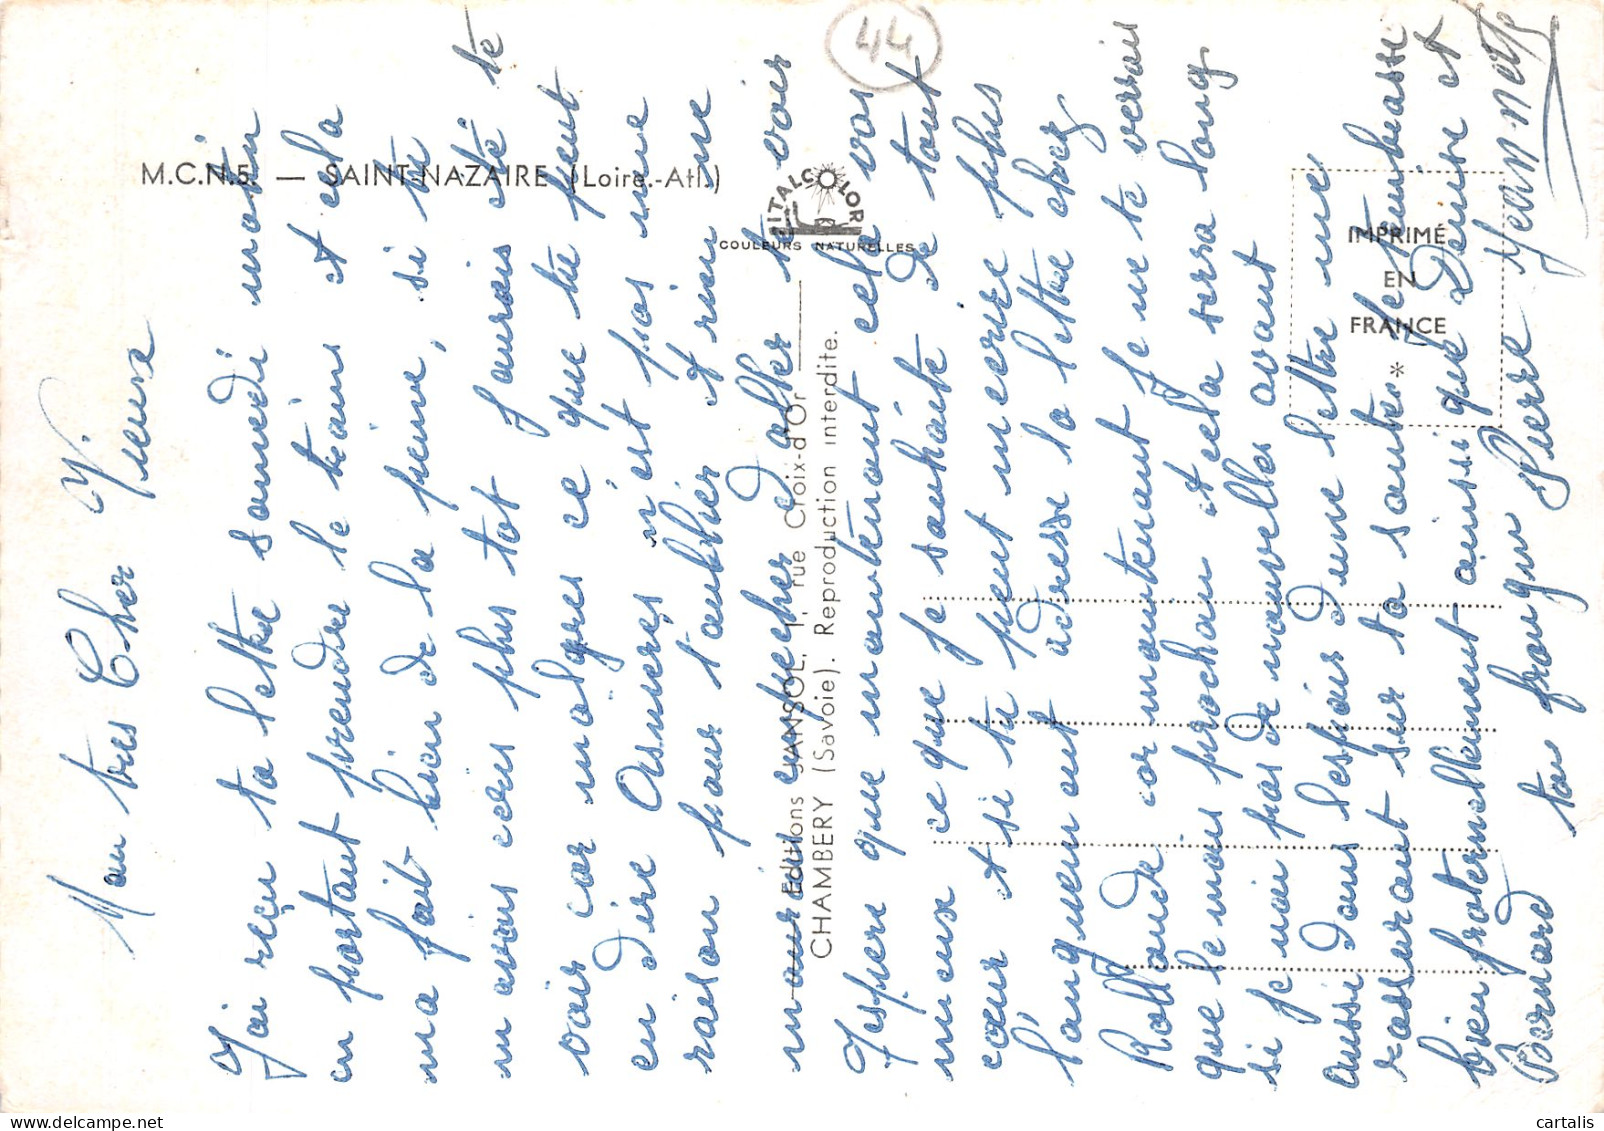 M.C.N.5. — SAINT-NAZAIRE (Loire.-Atl.)
ITALCOLOR
COULEURS NATURELLES
44
IMPRIMÉ
EN
FRANCE
*
Editions JANSOL, 1, rue Croix-d'Or
CHAMBERY (Savoie). Reproduction interdite.
Mon tres Cher Vieux
J'ai reçu ta lettre samedi matin
en partant prendre le trains et cela
ma fait bien de la peine, si tu
m avais ecris plus tot j'aurais été te
voir car malgres ce que tu peut
en dire Asnieres n'est pas une
raison pour t'oublier et rien ne
m aurait empecher d aller te voir
J'espere que maintenant cela vas
mieux ce que je souhaite de tout
cœur et si tu peut m ecrire plus
longuement adresse la lettre chez
Rollande car maintenant je ne te verrais
que le mois prochain et cela sera long
si je n'ai pas de nouvelles avant
aussi dans l'espoir d une lettre me
rassurant sur ta santée je t'embrasse
bien fraternellement ainsi que Denise et
Bernard ton frangin Pierre Jeannette
cartalis